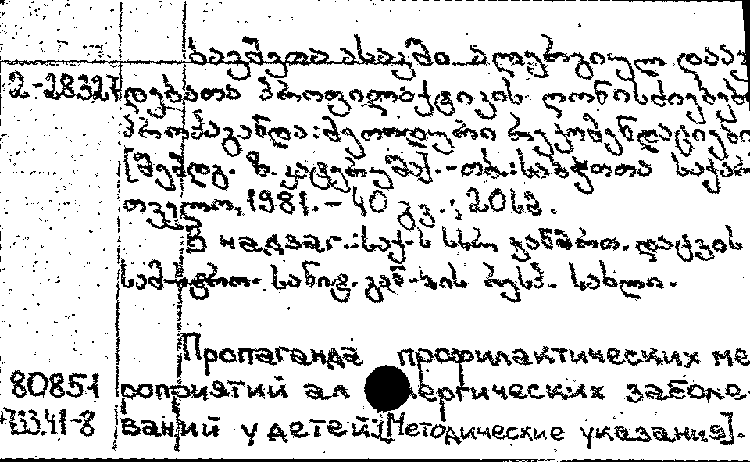 ბავშვთა ასაკში ალერგიულ დაავ
2-28327 დებათა პროფილაქტიკის ღონისძიებები
პროპაგანდა: მეთოდური რეკომენდაციები
[შემდგ. -თბ.: საბჭოთა საქარ
თველო, 1981.- 40 გვ.; 20სმ.
В надзаг.: საქ-ს სსრ ჯანმრთ. დაცვის
სამ-ტრო. სანიტ. გან-ის რესპ. სახლი.
Пропаганда профилактических ме
80851 роприятий ал лергических заболе
733.41-8 ваний у детей: [Методические указания].